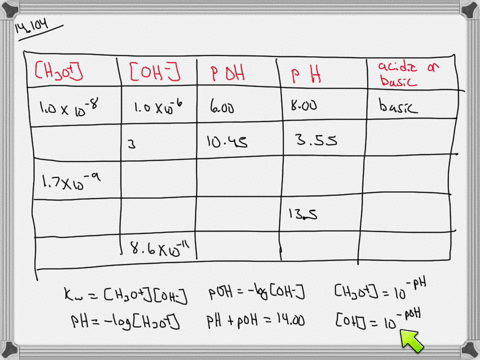 14.104
[H₃O⁺] [OH⁻] pOH pH acidic or basic
1.0 x 10⁻⁸ 1.0 x 10⁻⁶ 6.00 8.00 basic
3 10.45 3.55
1.7 x 10⁻⁹
13.5
8.6 x 10⁻¹¹
Kw = [H₃O⁺][OH⁻] pOH = -log[OH⁻] [H₃O⁺] = 10^-pH
pH = -log[H₃O⁺] pH + pOH = 14.00 [OH] = 10^-pOH